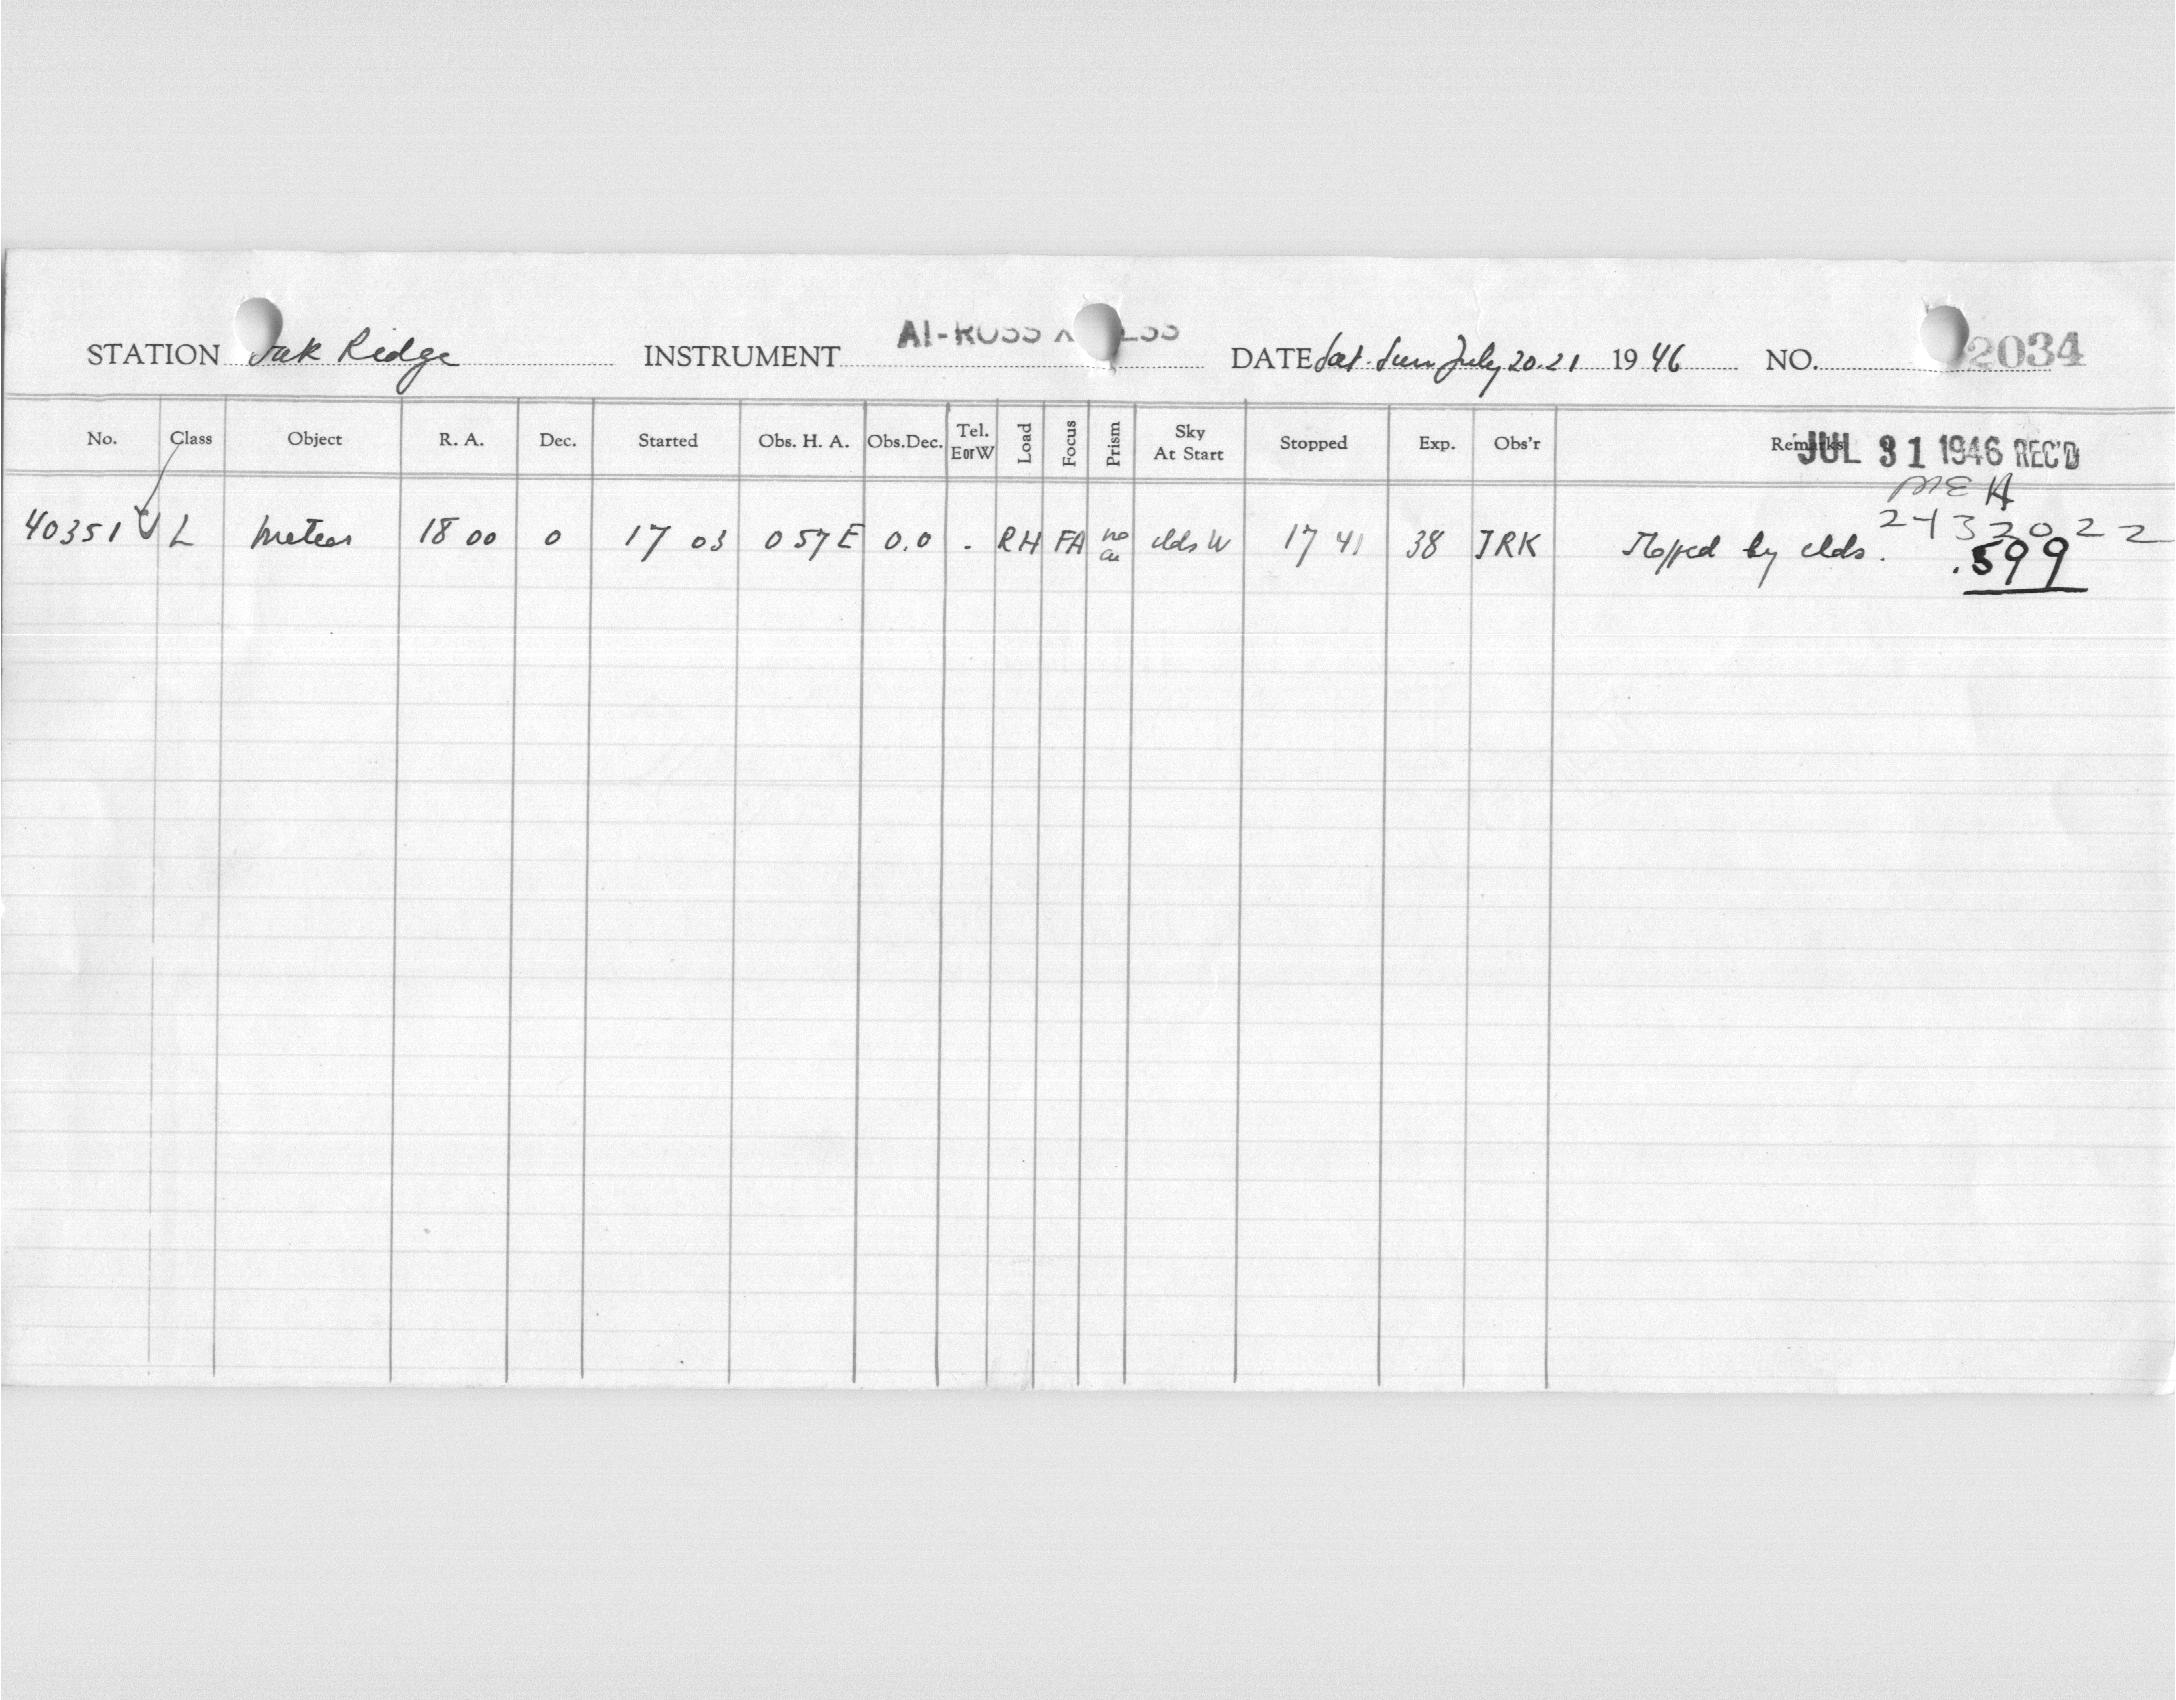 STATION Oak Ridge INSTRUMENT AI-ROSS DATE Sat. Sun. July 20.21 1946 NO. 2034
No. Class Object R. A. Dec. Started Obs. H. A. Obs.Dec. Tel. EorW Load Focus Prism Sky At Start Stopped Exp. Obs'r Remarks
JUL 31 1946 REC'D
MEH
40351 L Meteor 18 00 0 17 03 0 57 E 0.0 . RH FA no clds W 17 41 38 JRK Stopped by clds. 2432022
.599